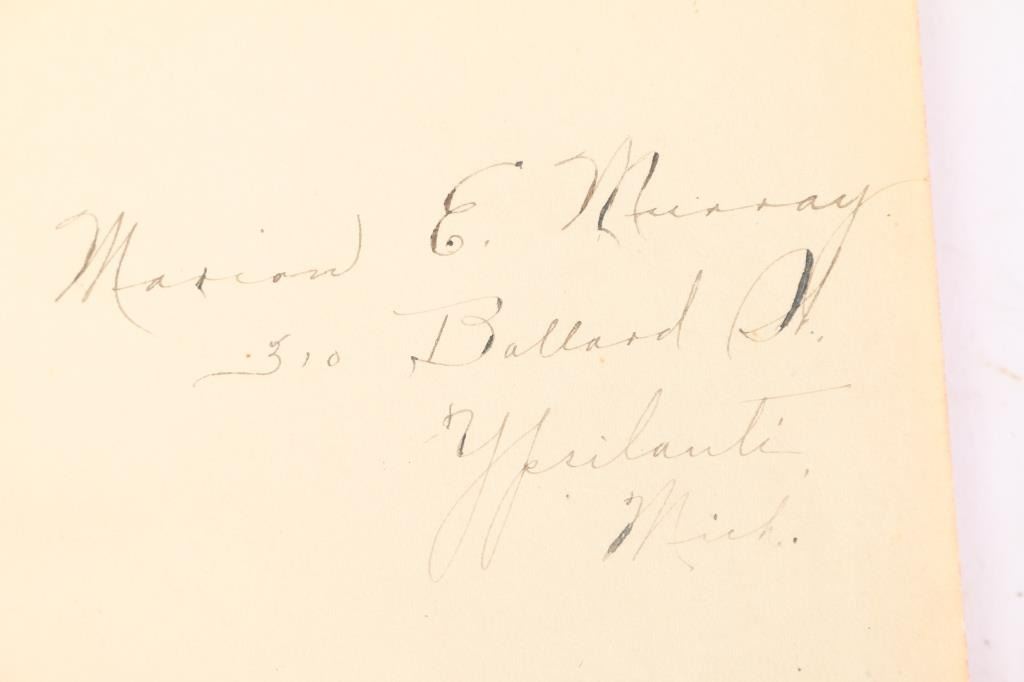 Marion E. Murray.
310 Ballard St.
Ypsilanti,
Mich.